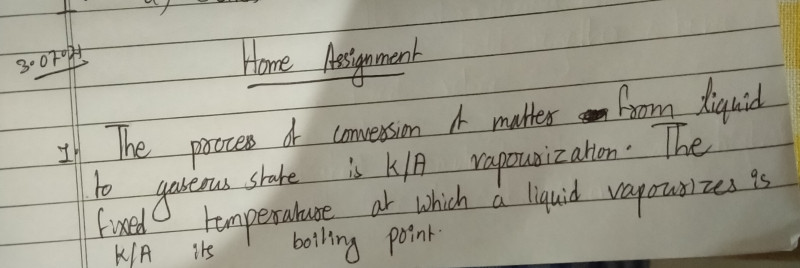 3.07.21
Home Assignment
1. The process of conversion of matter from liquid
to gaseous state is K/A vapourization. The
fixed temperature at which a liquid vapourizes is
K/A its boiling point.